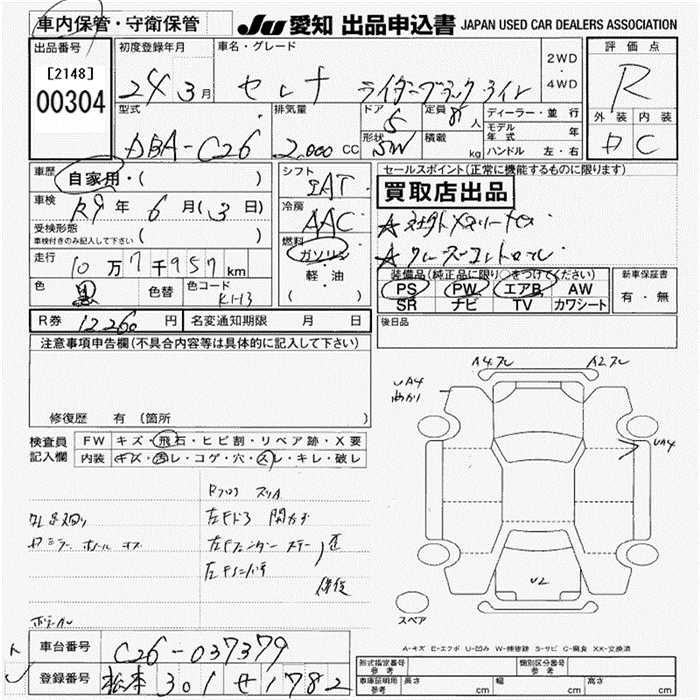 車内保管・守衛保管
JU 愛知 出品申込書 JAPAN USED CAR DEALERS ASSOCIATION
出品番号 初度登録年月 車名・グレード 2WD・4WD 評価点
[2148]
00304
24 3月 セレナ R
型式 排気量 ドア 5 定員 8人 ディーラー・並行 外装 内装
DBA-C26 2,000cc 形状 SW 積載 kg モデル年式 年 D C
ハンドル 左・右
車歴 自家用・( ) シフト IAT セールスポイント(正常に機能するものに限ります)
買取店出品
車検 R9年 6月(3日) 冷房 AAC
受検形態
車検付きのみ記入して下さい ( )
燃料 ガソリン・軽・油 ( )
☆クルーズコントロール
走行 10万7千957km
装備品(純正品に限り○をつけてください) 新車保証書
色 黒 色替 色コード KH3
PS PW エアB AW 有・無
SR ナビ TV カワシート
R券 12260円 名変通知期限 月 日 後日品
注意事項申告欄(不具合内容等は具体的に記入して下さい)
修復歴 有(箇所 )
検査員記入欄 FW キズ・飛石・ヒビ割・リペア跡・X要
内装 キズ・汚レ・コゲ・穴・スレ・キレ・破レ
A4.
A2.
UA4
UA4
U2
スペア
A-キズ E-エクボ U-凹み W-補修跡 S-サビ C-腐食 XX-交換済
車台番号 C26-037379
登録番号 松本 301 せ 1782
形式指定番号 参考 類別区分番号 参考
車庫証明用 参考 長さ cm 幅 cm 高さ cm